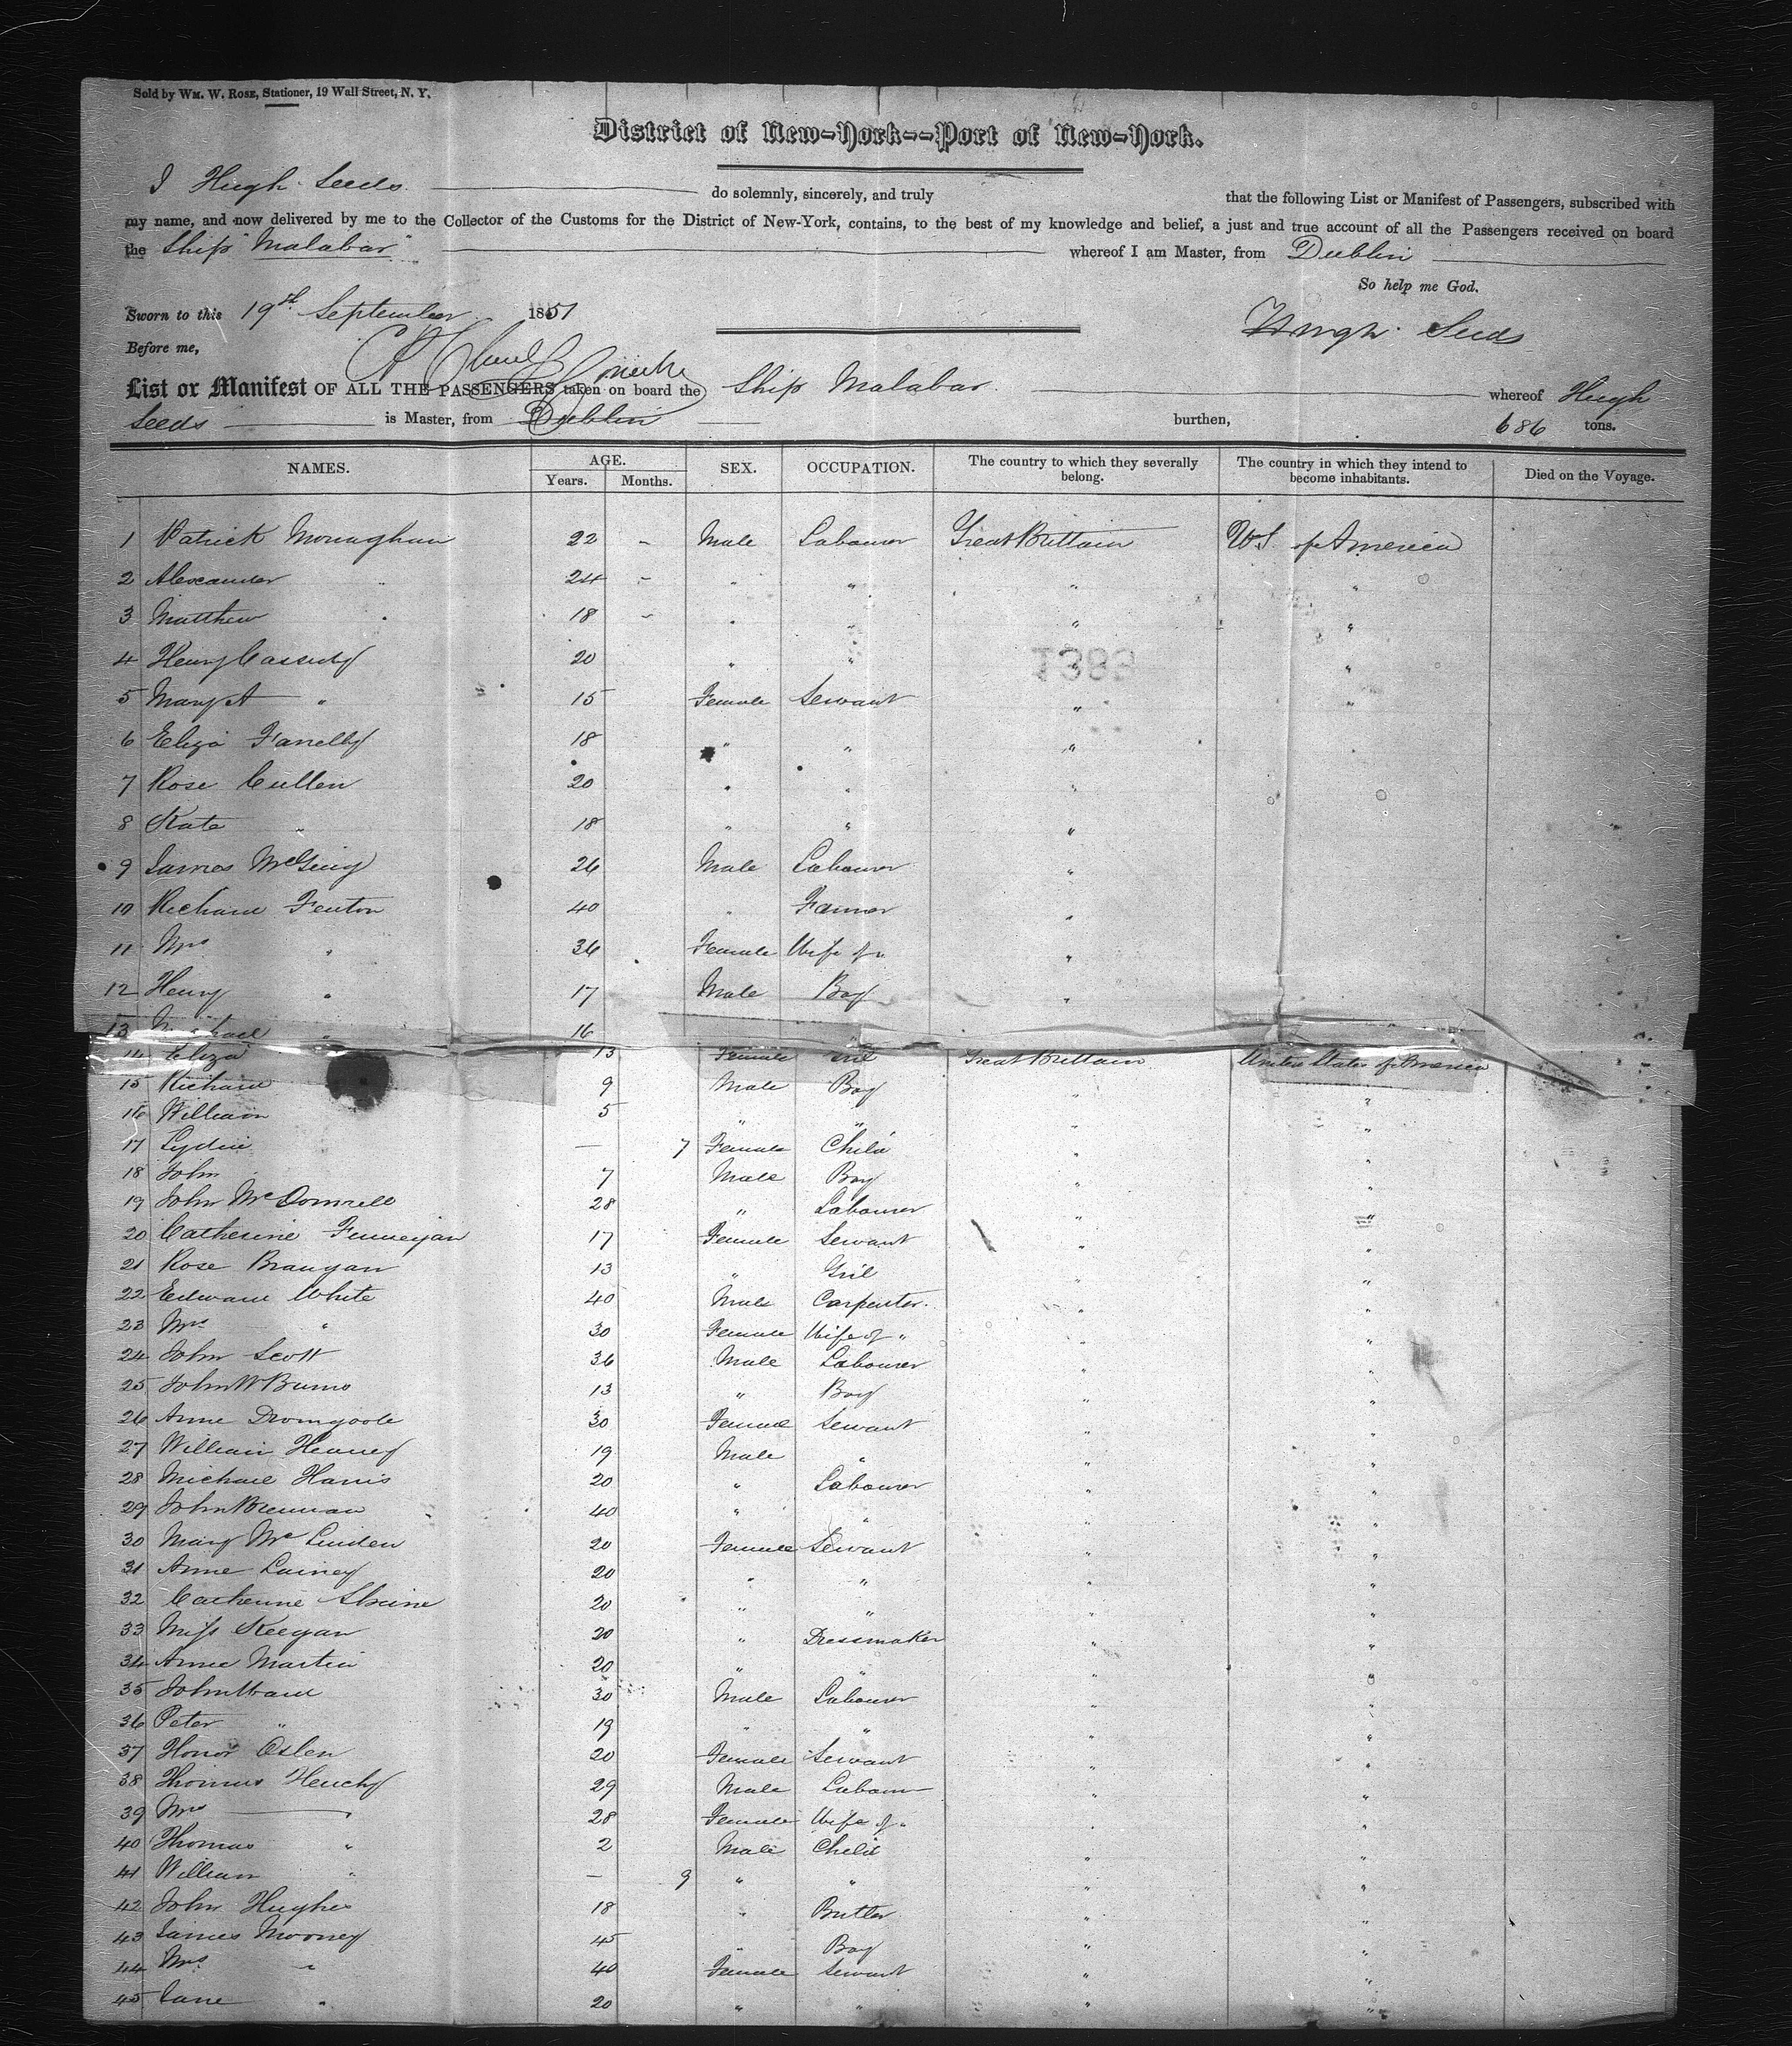 Sold by Wm. W. Rose, Stationer, 19 Wall Street, N. Y.
District of New-York--Port of New-York.
I Hugh Seeds do solemnly, sincerely, and truly that the following List or Manifest of Passengers, subscribed with
my name, and now delivered by me to the Collector of the Customs for the District of New-York, contains, to the best of my knowledge and belief, a just and true account of all the Passengers received on board
the Ship "Malabar" whereof I am Master, from Dublin
So help me God.
Sworn to this 19th September 1851
Hugh Seeds
Before me,
List or Manifest OF ALL THE PASSENGERS taken on board the Ship Malabar whereof Hugh
Seeds is Master, from Dublin burthen, 686 tons.
NAMES. AGE. Years. Months. SEX. OCCUPATION. The country to which they severally belong. The country in which they intend to become inhabitants. Died on the Voyage.
1 Patrick Monaghan 22 - Male Labourer Great Brittain U.S. of America
2 Alexander " 24 - " " " "
3 Matthew " 18 - " " " "
4 Henry Cassidy 20 " " " "
1383
5 Mary A " 15 Female Servant " "
6 Eliza Farrelly 18 " " "
7 Rose Cullen 20 " " "
8 Kate " 18 " " "
9 James 26 Male Labourer "
10 Richard Fenton 40 " Farmer "
11 Mrs " 36 Female Wife of " "
12 Henry " 17 Male Boy "
13 Michael " 16
14 Eliza 13 Female Girl Great Brittain United States of America
15 Richard 9 Male Boy " "
16 William 5 " " " "
17 Lydia - 7 Female Child " "
18 John 7 Male Boy " "
19 John McDonnell 28 " Labourer " "
20 Catherine Finnegan 17 Female Servant " "
21 Rose Brangan 13 " Girl " "
22 Edward White 40 Male Carpenter. " "
23 Mrs " 30 Female Wife of " " "
24 John Scott 36 Male Labourer " "
25 John W Burns 13 " Boy " "
26 Anne Dromgoole 30 Female Servant " "
27 William Heaney 19 Male " " "
28 Michael Harris 20 " Labourer " "
29 John Brennan 40 " " " "
30 Mary Mc Linden 20 Female Servant " "
31 Anne Lainey 20 " " " "
32 Catherine 20 " " " "
33 Miss Keegan 20 " Dressmaker " "
34 Anne Martin 20 " " " "
35 John Ward 30 Male Labourer " "
36 Peter " 19 " " " "
37 Honor 20 Female Servant " "
38 Thomas Heuchy 29 Male Labourer " "
39 Mrs " 28 Female Wife of " " "
40 Thomas " 2 Male Child " "
41 William " - 9 " " " "
42 John Hughes 18 " Butler " "
43 James Mooney 45 " Boy " "
44 Mrs " 40 Female Servant " "
45 Jane " 20 " " " "